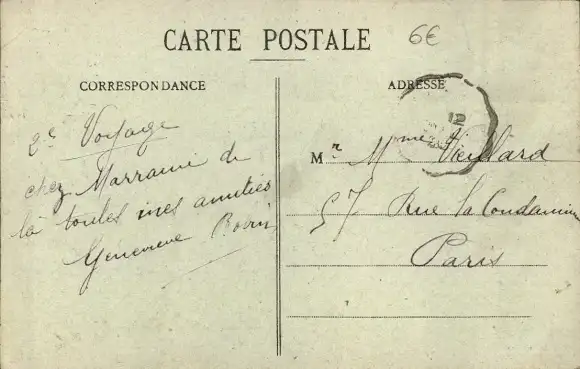 CARTE POSTALE
6€
CORRESPONDANCE
2e Voyage
chez Marraine de
là toutes mes amitiés
Geneviève
ADRESSE
12
Mr Mme Vieillard
57 Rue la Condamine
Paris